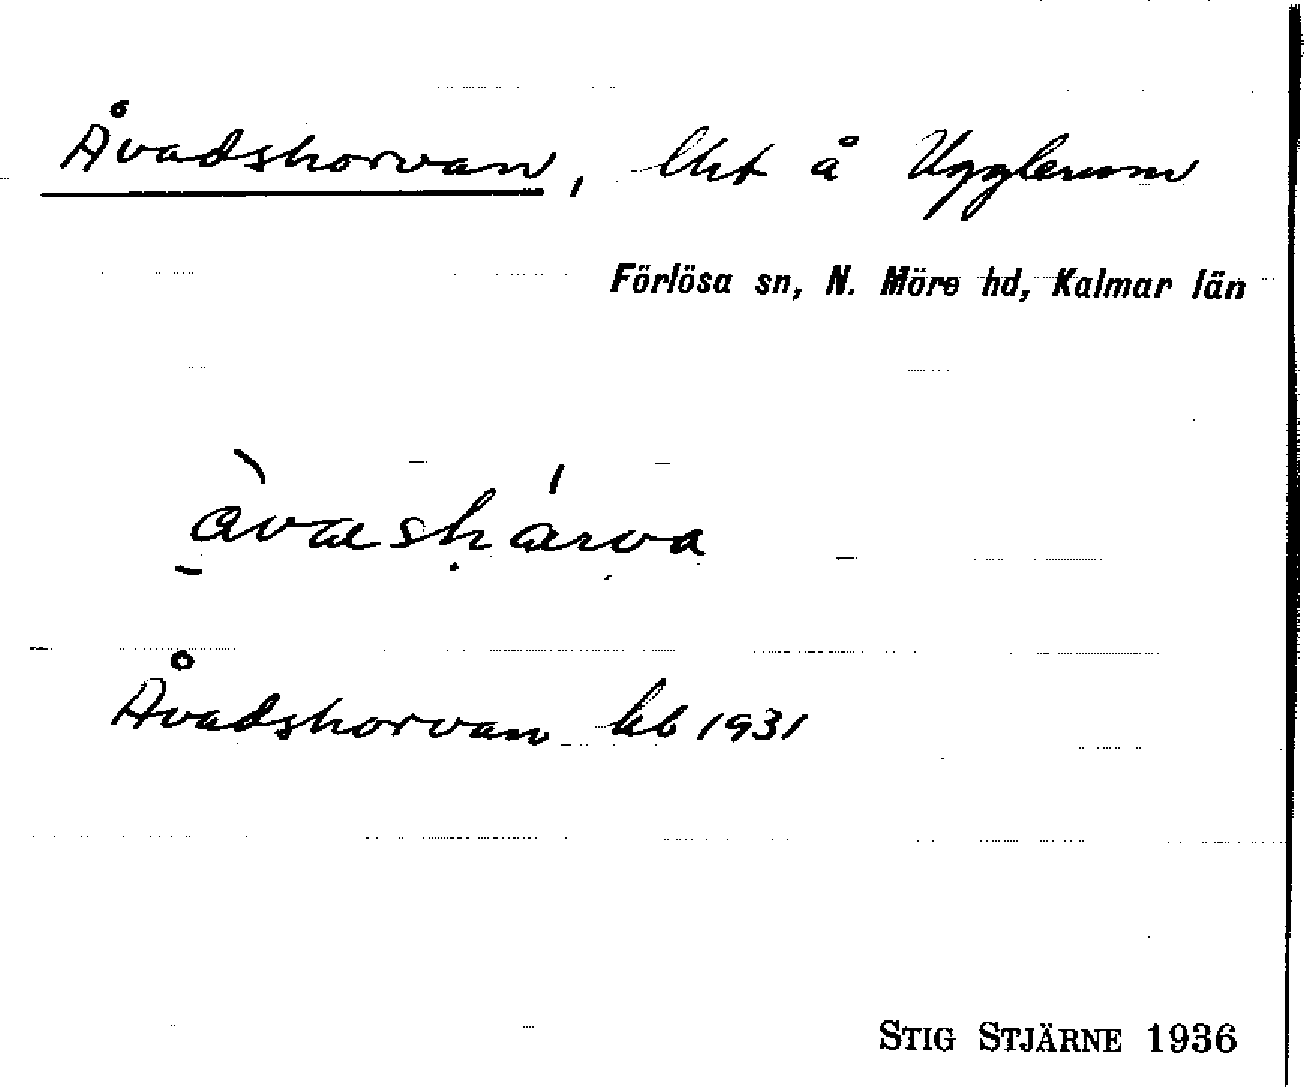 Åvadshorvan, lht å Ugglerum
Förlösa sn, N. Möre hd, Kalmar län
Åvadshorvan kb 1931
STIG STJÄRNE 1936